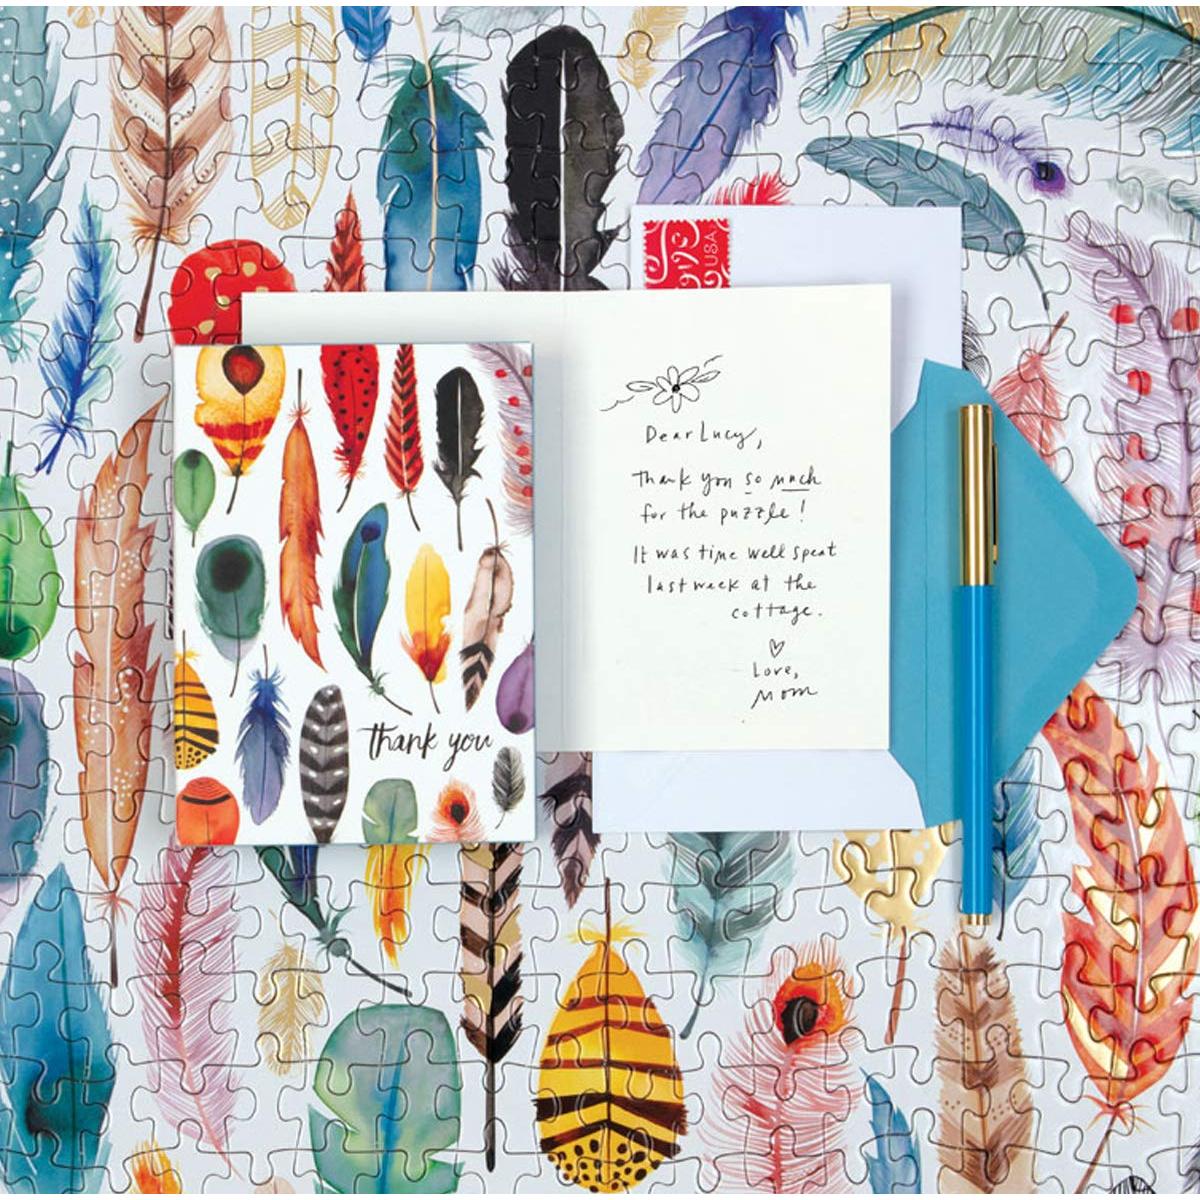 USA
Dear Lucy,
Thank you so much
for the puzzle!
It was time well spent
last week at the
cottage.
♡
Love,
Mom
thank you